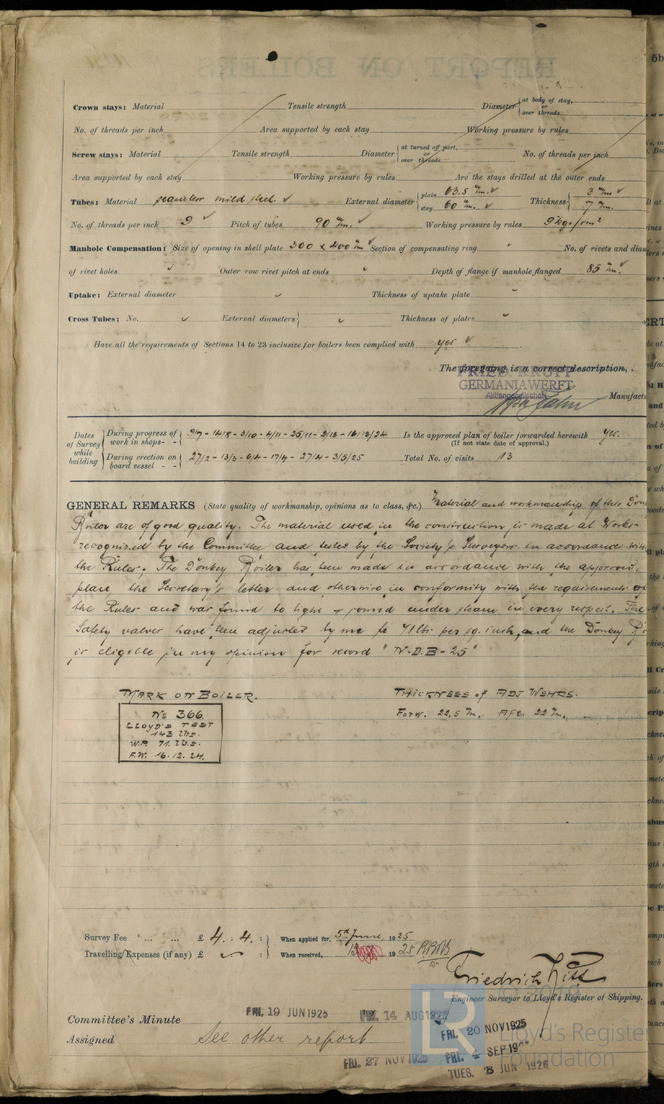 Crown stays: Material Tensile strength Diameter at body of stay, or over threads.
No. of threads per inch Area supported by each stay Working pressure by rules
Screw stays: Material Tensile strength Diameter at turned off part, or over threads No. of threads per inch
Area supported by each stay Working pressure by rules Are the stays drilled at the outer ends
Tubes: Material seamless mild steel. External diameter plain 63.5 m/m. stay 60 m/m. Thickness 3 m/m 7 m/m.
No. of threads per inch 9 Pitch of tubes 90 m/m. Working pressure by rules 9 kgs/cm²
Manhole Compensation: Size of opening in shell plate 300 x 400 m/m Section of compensating ring " No. of rivets and diam
of rivet holes " Outer row rivet pitch at ends " Depth of flange if manhole flanged 85 m/m.
Uptake: External diameter Thickness of uptake plate
Cross Tubes: No. External diameters Thickness of plates
Have all the requirements of Sections 14 to 23 inclusive for boilers been complied with yes
The foregoing is a correct description,
FRIED. KRUPP
GERMANIAWERFT
Aktiengesellschaft
Manufact
Dates of Survey while building
During progress of work in shops - - 9/7 - 14/8 - 3/10 - 4/11 - 25/11 - 2/12 - 16/12/24 Is the approved plan of boiler forwarded herewith yes.
(If not state date of approval.)
During erection on board vessel - - 27/2 - 13/3 - 6/4 - 17/4 - 27/4 - 3/5/25 Total No. of visits 13
GENERAL REMARKS (State quality of workmanship, opinions as to class, &c.) Material and workmanship of this Don
Boiler are of good quality. The material used in the construction is made at Works
recognised by the Committee and tested by the Society's Surveyors in accordance with
the Rules. The Donkey Boiler has been made in accordance with the approved
plan, the Secretary's letter and otherwise in conformity with the requirements of
the Rules and was found to tight & sound under steam in every respect. The
Safety valves have been adjusted by me to 71 lbs per sq. inch, and the Donkey
is eligible in my opinion for record "N.D.B-25"
MARK ON BOILER.
No 366.
LLOYD'S TEST
143 lbs.
W.P. 71 lbs.
F.W. 16.12.24.
THICKNESS of ADJ WEHRS.
Forw. 22,5 m/m. Aft. 22 m/m.
Survey Fee ... ... £ 4 : 4 : When applied for, 5th June, 1925
Travelling Expenses (if any) £ When received, 1925
Friedrich
Engineer Surveyor to Lloyd's Register of Shipping.
© 2019
LR
Lloyd's Register
Foundation
Committee's Minute FRI. 19 JUN 1925 FRI. 14 AUG 1925
FRI. 20 NOV 1925
Assigned See other report
FRI. 27 NOV 1925
TUES. 8 JUN 1926